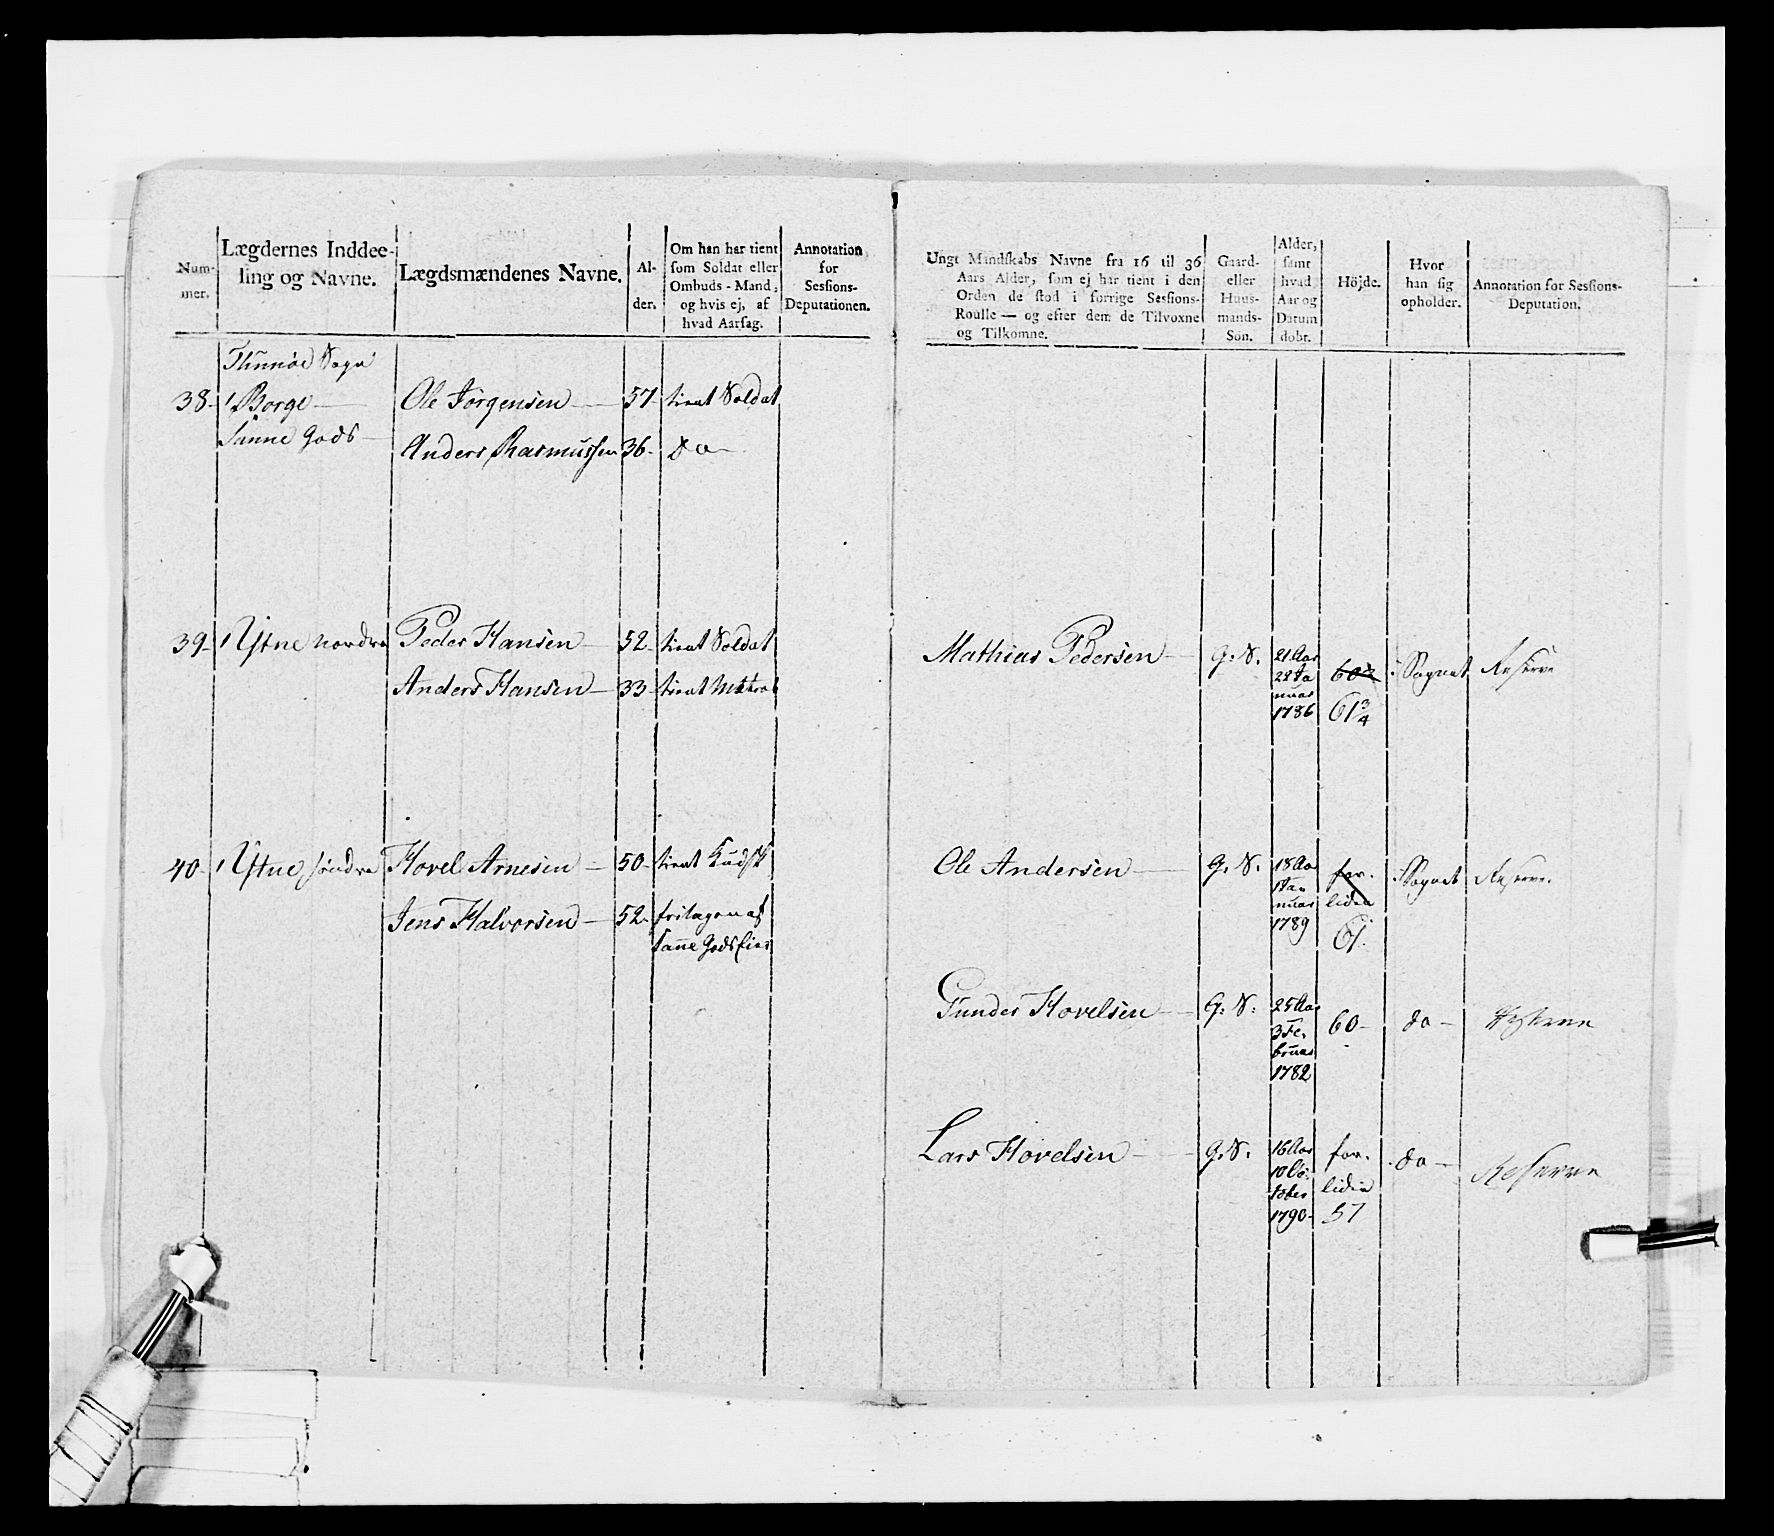 Num-
mer.
Lægdernes Inddee-
ling og Navne.
Lægdsmændenes Navne.
Al-
der.
Om han har tient
som Soldat eller
Ombuds-Mand;
og hvis ej, af
hvad Aarsag.
Annotation
for
Sessions-
Deputationen.
Ungt Mandskabs Navne fra 16 til 36
Aars Alder, som ej har tient i den
Orden de stod i forrige Sessions-
Roulle — og efter dem de Tilvoxne
og Tilkomne.
Gaard-
eller
Huus-
mands-
Sön.
Alder,
samt
hvad
Aar og
Datum
dobt.
Höjde.
Hvor
han sig
opholder.
Annotation for Sessions-
Deputation.
Thunøe Sogn
38- 1 Borge — Ole Jörgensen — 57- tient Soldat
Sanne Gods —
Anders Rasmussen 36- do —
39- 1 Ytne nordre Peder Hansen — 52- tient Soldat
Anders Hansen — 33- tient Matros
Mathias Pedersen — G. S. 21 Aar
22 Ja
nuar
1786
60½
61¾
i Sognet Reserve
40- 1 Ytne söndre Hovel Arnesen — 50- tient Kudsk
Jens Halvorsen — 52- fritagen af
Sanne Gods Eier
Ole Andersen — G. S. 18 Aar
1 Jan
nuar
1789
for-
liden
61.
i Sognet Reserve.
Gunder Hovelsen — G. S. 25 Aar
3 Fe-
bruar
1782
60- do —
Lars Hovelsen — G. S. 16 Aar
10 Oc-
tober
1790-
for-
liden
57
do — Reserve